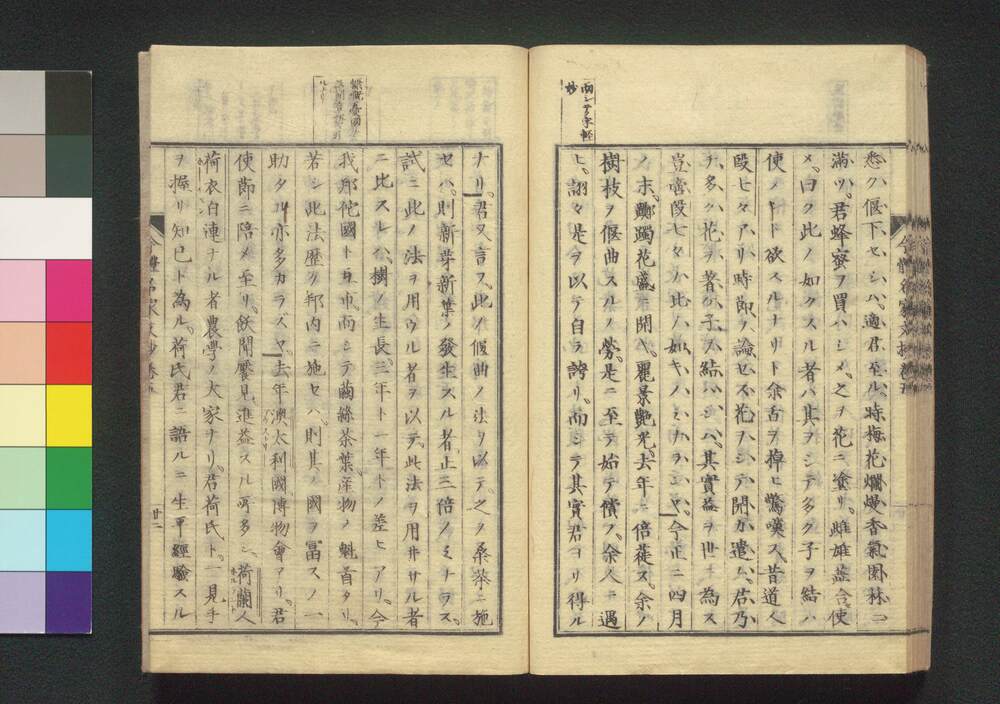 而シテ字軽
妙
悉ク偃下セシハ適君至ル時梅花爛熳香氣園林ニ
滿ツ君蜂蜜ヲ買ハシメ之ヲ花ニ塗リ雌雄蕊合使
メ曰ク此ノ如クスル者ハ其ヲシテ多ク子ヲ結ハ
使メント欲スルナリト余舌ヲ掉ヒ驚嘆ス昔道人
殷七々アリ時節ヲ論セス花ヲシテ開カ遣ム君乃
チ多ク花ヲ著ケ子ヲ結ハシム其實益ヲ世ニ為ス
豈啻殷七々ハ比ノ如キノミナランヤ今正ニ四月
ノ末躑躅花盛ニ開キ麗景艶光去年ニ倍蓰ス余ノ
樹枝ヲ偃曲スルノ勞是ニ至テ始テ償フ余人ニ遇
ヒ詡々是ヲ以テ自ラ誇リ而シテ其實君ヨリ得ル
ナリ君又言ス此ノ偃曲ノ法ヲ以テ之ヲ桑茶ニ施
セハ則新芽新葉ノ發生スル者正三倍ノミナラス
試ニ此ノ法ヲ用ウル者ヲ以テ此法ヲ用井サル者
ニ比スレハ樹ノ生長三年ト一年トノ差ヒアリ今
我邦佗國ト互市而シテ繭絲茶葉産物ノ魁首タリ
若シ此法歴ク邦内ニ施セハ則其ノ國ヲ冨スノ一
助タル亦多カラスヤ去年澳太利國博物會アリ君
使節ニ陪〆至リ飫聞饜見進益スル所多シ荷蘭人
荷衣白連ナル者農學ノ大家ナリ君荷氏ト一見手
ヲ握リ知已ト為ル荷氏君ニ語ルニ生平經驗スル
廿二